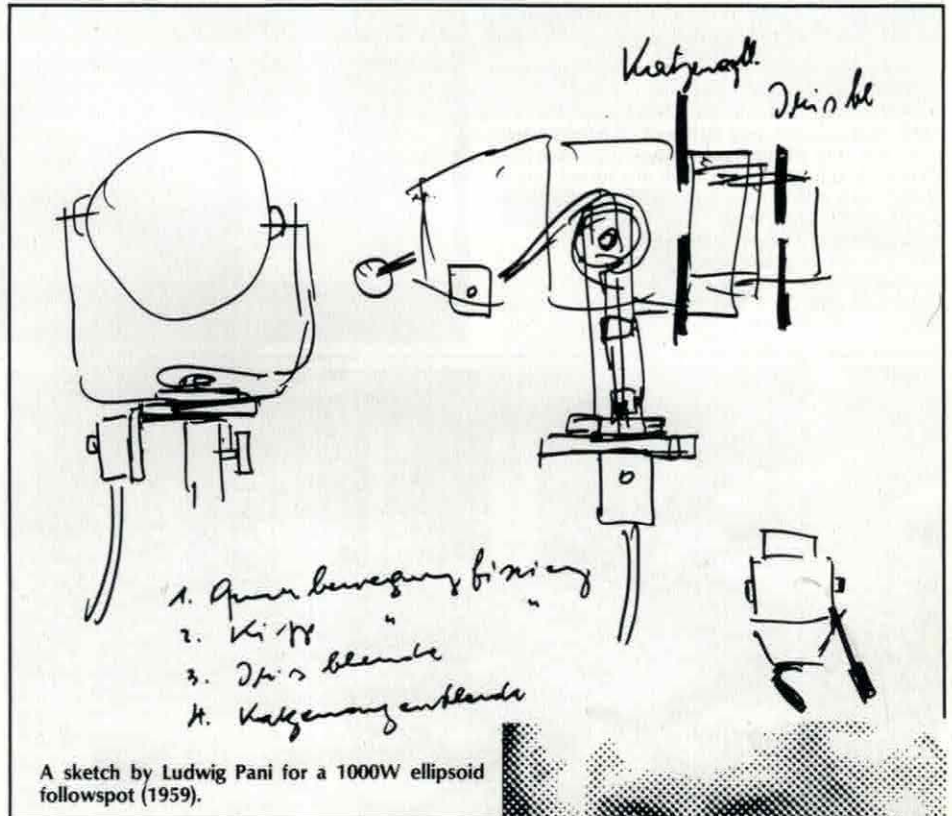 Katzenaugbl.
Iris bl
1. Querbewegung fixierg
2. Kipp " "
3. Iris blende
4. Katzenaugenblende
A sketch by Ludwig Pani for a 1000W ellipsoid
followspot (1959).